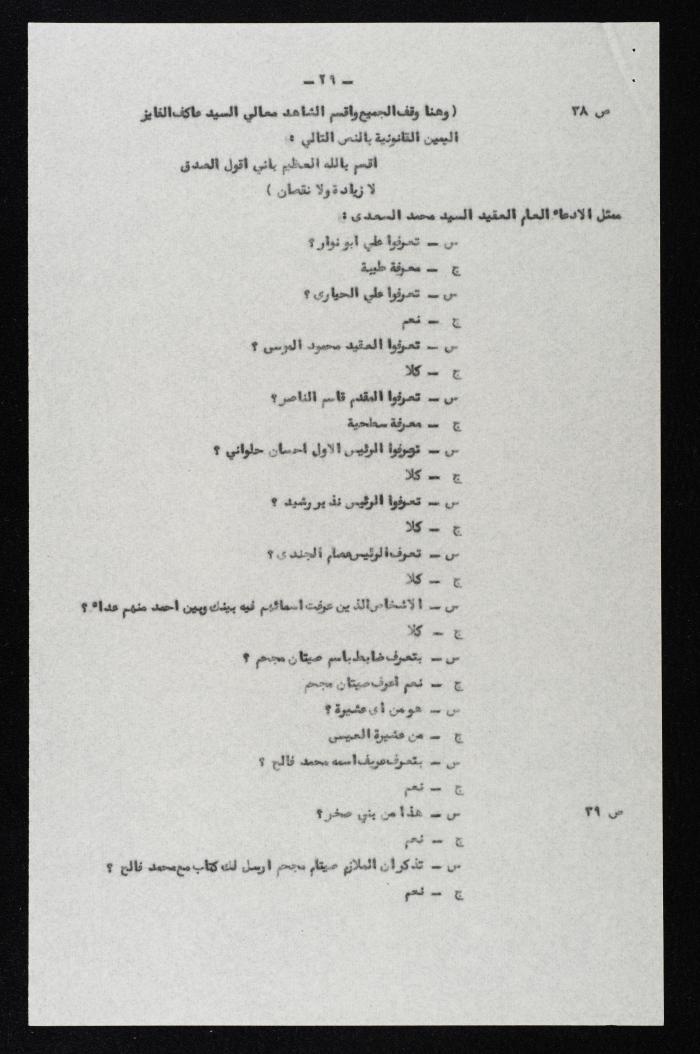 – ٢٩ –
ص ٣٨ ( وهنا وقف الجميع واقسم الشاهد معالي السيد عاكف الفايز
اليمين القانونية بالنص التالي :
اقسم بالله العظيم باني اقول الصدق
لا زيادة ولا نقصان )
ممثل الادعاء العام العقيد السيد محمد السعدى :
س – تعرفوا علي ابو نوار ؟
ج – معرفة طيبة
س – تعرفوا علي الحيارى ؟
ج – نعم
س – تعرفوا العقيد محمود الموسى ؟
ج – كلا
س – تعرفوا المقدم قاسم الناصر ؟
ج – معرفة سطحية
س – تعرفوا الرئيس الاول احسان حلواني ؟
ج – كلا
س – تعرفوا الرئيس نذير رشيد ؟
ج – كلا
س – تعرف الرئيس عصام الجندى ؟
ج – كلا
س – الاشخاص الذين عرفت اسمائهم فيه بينك وبين احمد منهم عداء ؟
ج – كلا
س – بتعرف ضابط باسم صيتان مجحم ؟
ج – نعم اعرف صيتان مجحم
س – هو من أى عشيرة ؟
ج – من عشيرة العيسى
س – بتعرف عريف اسمه محمد فالح ؟
ج – نعم
ص ٣٩ س – هذا من بني صخر ؟
ج – نعم
س – تذكر ان الملازم صيتام مجحم ارسل لك كتاب مع محمد فالح ؟
ج – نعم